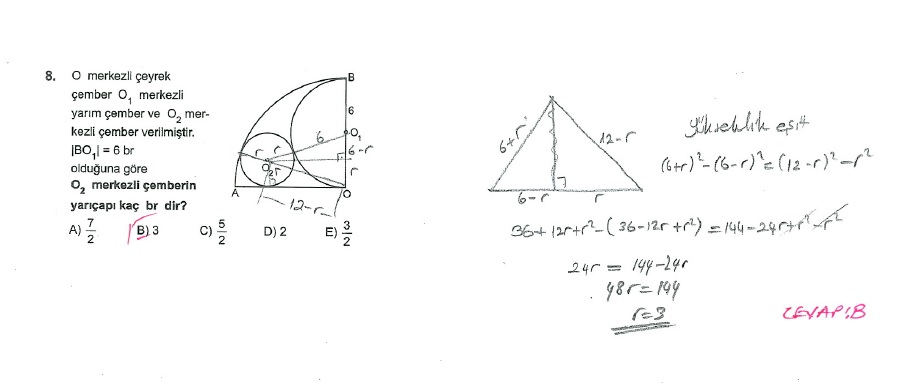 8. O merkezli çeyrek
çember O₁ merkezli
yarım çember ve O₂ mer-
kezli çember verilmiştir.
|BO₁| = 6 br
olduğuna göre
O₂ merkezli çemberin
yarıçapı kaç br dir?
A) 7/2 B) 3 C) 5/2 D) 2 E) 3/2
B
6
O₁
6
6-r
r r
O₂ r
r
A
O
12-r
6+r
12-r
6-r
r
yükseklik eşit
(6+r)²-(6-r)²=(12-r)²-r²
36+12r+r²-(36-12r+r²)=144-24r+r²-r²
24r = 144-24r
48r=144
r=3
CEVAP:B